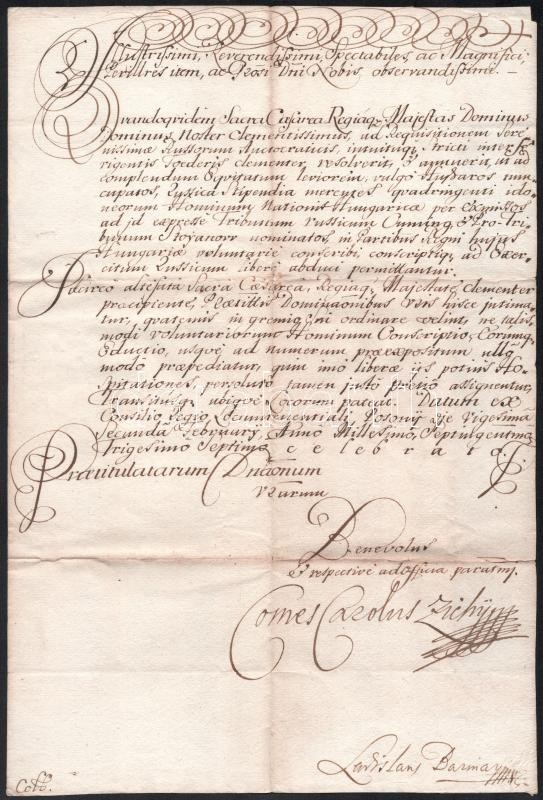 Illustrissimi, Reverendissimi, Spectabiles, ac Magnifici,
Perillres item, ac Grosi Dni Nobis observandissime.
Quandoquidem Sacra Cæsarea Regiaq; Majestas Dominus
Dominus Noster Clementissimus, ad Requisitionem Sere-
nissimæ Russorum Autocraticis, intuituq; stricti inter se
vigentis Foederis clementer resolverit, & annuerit, ut ad
complendum Equitatum leviorem, vulgo Hussaros nun-
cupatos, Russica Stipendia merentes quadringenti ido-
neorum Hominum Nationis Hungaricæ per exmissos
ad id expresse Tribunum Russicum Cuming, & Pro-Tri-
bunum Stojanow nominatos, in Partibus Regni hujus
Hungariæ voluntarie conscribi, conscriptiq; ad Exer-
citum Russicum libere abduci permittantur.
Idcirco altefata Sacra Cæsarea, Regiaq; Majestate clementer
præcipiente, Prætitlis Dominaonibus Vris hisce intima-
tur, quatenus in gremio sui ordinare velint, ne talis-
modi voluntariorum Hominum Conscriptio, eorumq;
Eductio, usque ad numerum præexpositum ullo
modo præpediatur, quin imo liberæ iis potius Ho-
spitationes, persoluto tamen justo pretio assignentur,
Transitusq; ubique eorum pateat. Datum ex
Consilio Regio Locumtenentiali, Posonii, Die Vigesima
Secunda February, Anno Millesimo, Septingentesimo
Trigesimo Septimo celebrato.
Prætitulatarum Dnaonum
Vrarum
Benevolus
& respective ad officia paratus mp.
Comes Carolus Zichy mp
Ladislaus
Cott.